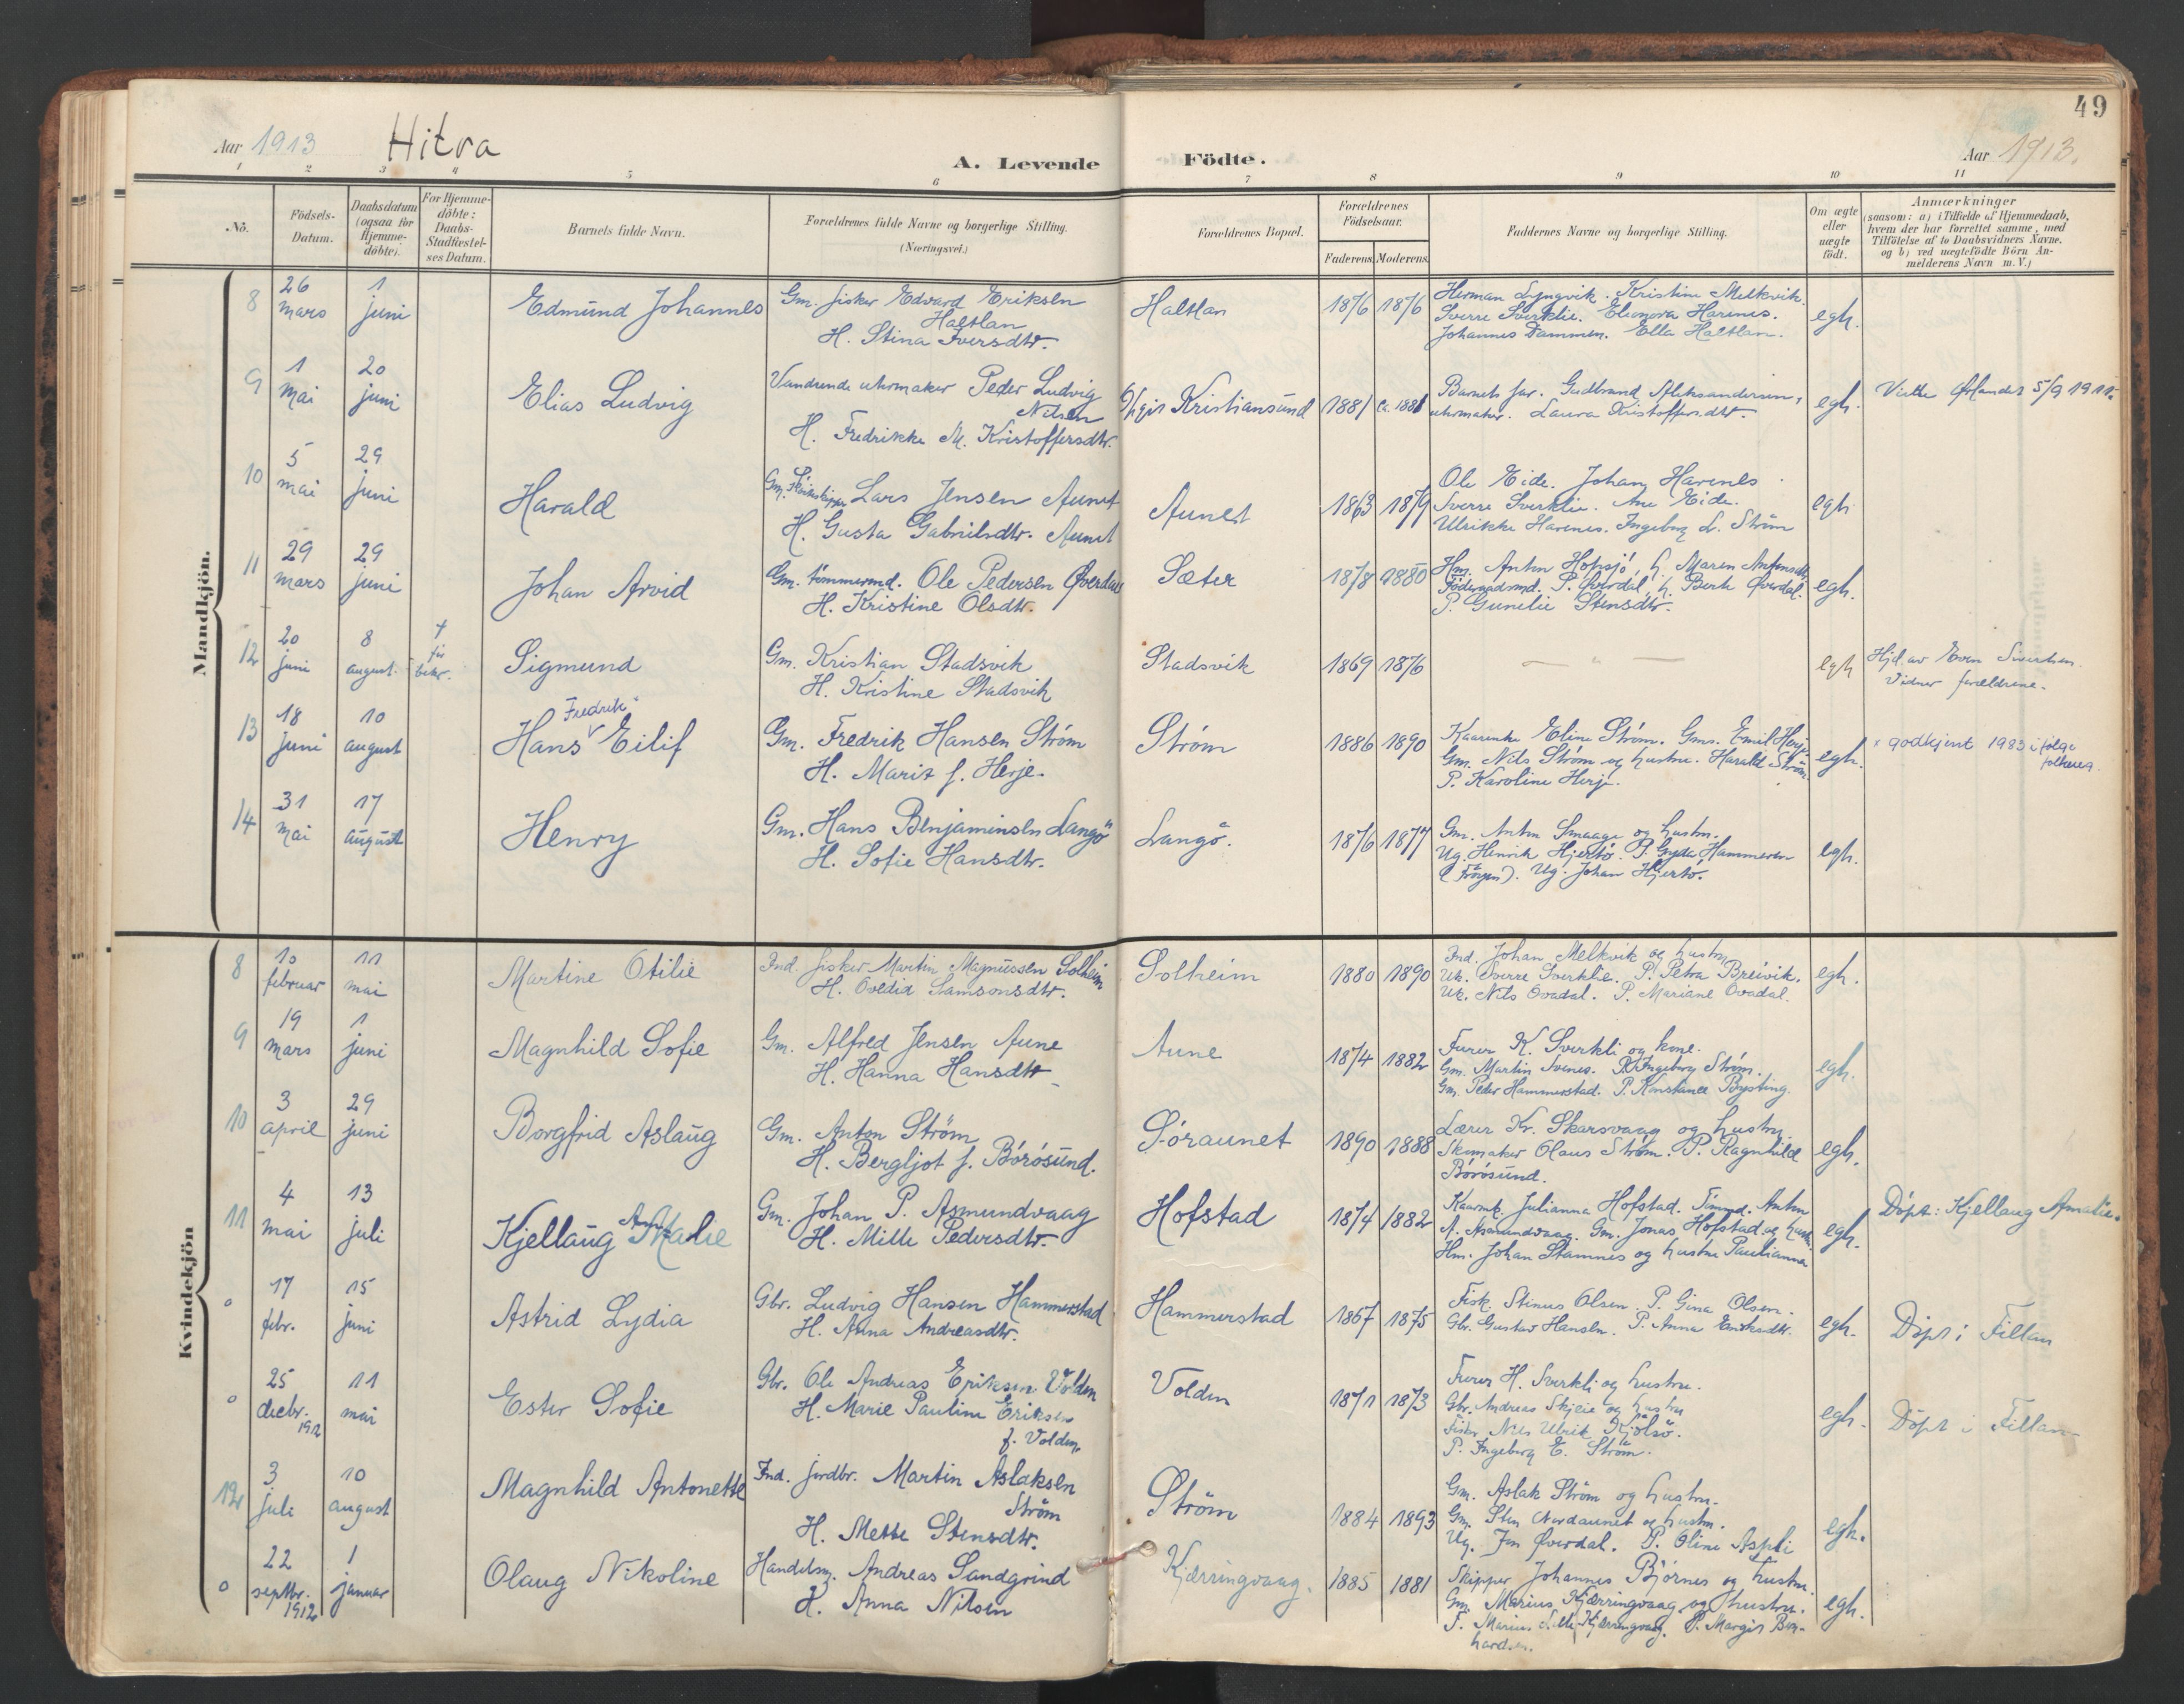 49
Aar 1913 Hitra A. Levende Födte. Aar 1913.
1 2 3 4 5 6 7 8 9 10 11
No. Födsels-Datum. Daabsdatum (ogsaa for Hjemme-döbte). For Hjemme-döbte: Daabs-Stadfæstel-ses Datum. Barnets fulde Navn. Forældrenes fulde Navne og borgerlige Stilling. (Næringsvei.) Forældrenes Bopæl. Forældrenes Födselsaar. Faderens. Moderens. Faddernes Navne og borgerlige Stilling. Om ægte eller uægte födt. Anmærkninger (saasom: a) i Tilfælde af Hjemmedaab, hvem der har forrettet samme, med Tilföielse af to Daabsvidners Navne. og b) ved uægtefödte Börn An-melderens Navn m. V.)
Mandkjön.
8 26 mars 1 juni Edmund Johannes Gm. fisker Edvard Eriksen Haltlan H. Stina Iversdtr. Haltlan 1876 1876 Herman Lyngvik. Kristine Melkvik.
Sverre Sverklie. Eleonora Harenes. egh.
Johannes Dammen. Ella Haltlan.
9 1 mai 20 juni Elias Ludvig Vandrende uhrmaker Peder Ludvig Nilsen H. Fredrikke M. Kristoffersdtr. Kristiansund 1881 ca. 1881 Barnets far. Gudbrand Aleksandersen,
uhrmaker. Laura Kristoffersdtr. egh. Viede Ørlandet 5/9 1911.
10 5 mai 29 juni Harald Gm. Lars Jensen Aunet H. Gusta Gabrielsdtr. Aunet Aunet 1863 1879 Ole Eide. Johan Harenes
Sverre Sverklie. Ane Eide. egh
Ulrikke Harenes. Ingeborg L. Ström
11 29 mars 29 juni Johan Arvid Gm. tömmermd. Ole Pedersen Øverdal H. Kristine Olsdtr. Sæter 1878 1880 Hm. Anton Hopsjö, h. Maren Antonsdtr.
Föderaadsmd. P. Øverdal, h. Berit Øverdal. egh.
P. Gunelie Stensdtr.
12 20 juni 8 august. † før bekr. Sigmund Gm. Kristian Stadsvik H. Kristine Stadsvik Stadsvik 1869 1876 — " — egh Hjd. av Even Sivertsen.
Vidner forældrene.
13 18 juni 10 august Hans Fredrik Eilif Gm. Fredrik Hansen Strøm H. Marit f. Herje. Ström 1886 1890 Kaarenke Eline Strøm. Gm. Emil Herje.
Gm. Nils Strøm og hustru. Harald Ström. egh. × godkjent 1983 ifølge folkereg.
P. Karoline Herje.
14 31 mai 17 august Henry Gm. Hans Benjaminsen Langö H. Sofie Hansdtr. Langö. 1876 1877 Gm. Anton Smaage og hustru.
Ug. Henrik Hjertö. P. Gyda Hammerer egh.
(Fröyen). Ug. Johan Hjertö.
Kvindekjön
8 10 februar 11 mai Martine Otilie Ind. fisker Martin Magnussen Solheim H. Ovedia Samsonsdtr. Solheim 1880 1890 Ind. Johan Melkvik og hustru
Uk. Sverre Sverklie. P. Petra Breivik. egh.
Uk. Nils Ovadal. P. Mariane Ovadal.
9 19 mars 1 juni Magnhild Sofie Gm. Alfred Jensen Aune H. Hanna Hansdtr Aune 1874 1882 Furer K. Sverkli og kone.
Gm. Martin Svenes. P. Ingeborg Strøm. egh.
Gm. Peder Hammerstad. P. Konstanse Røysting.
10 3 april 29 juni Borgfrid Aslaug Gm. Anton Ström H. Bergljot f. Börösund. Söraunet 1890 1888 Lærer Kr. Skarsvaag og hustru
Skomaker Olaus Ström. P. Ragnhild egh.
Börösund.
11 4 mai 13 juli Kjellaug Amalie Gm. Johan P. Asmundvaag H. Mille Pedersdtr. Hofstad 1874 1882 Kaarenk. Julianna Hofstad. Tömmd. Anton
A. Asmundvaag. Gm. Jonas Hofstad og hustru. egh. Döpt: Kjellaug Amalie.
Hm. Johan Stamnes og hustru Paulianna
o 17 febr. 15 juni Astrid Lydia Gbr. Ludvig Hansen Hammerstad H. Anna Andreasdtr. Hammerstad 1867 1875 Fisk. Stinus Olsen. P. Gina Olsen.
Gbr. Gustav Hansen. P. Anna Eriksdtr. egh. Döpt i Fillan
o 25 decbr. 1912 11 mai Ester Sofie Gbr. Ole Andreas Eriksen Volden H. Marie Pauline Eriksen f. Volden. Volden 1871 1873 Furer H. Sverkli og hustru.
Gbr. Andreas Skjeie og hustru egh. Döpt i Fillan
Fisker Nils Ulrik Kjölsö.
P. Ingeborg E. Ström.
12 3 juli 10 august Magnhild Antonette Ind. jordbr. Martin Aslaksen Ström H. Mette Stensdtr. Ström 1884 1893 Gm. Aslak Ström og hustru.
Gm. Sten Nordaunet og hustru. egh.
Ug. Jon Øverdal. P. Oline Aspli
o 22 septbr. 1912 1 januar Olaug Nikoline Handelsm. Andreas Sandgrind H. Anna Nilsen Kjærringvaag. 1885 1881 Skipper Johannes Björnes og hustru.
Gm. Marius Kjærringvaag og hustru. egh.
F. Marius Kjærringvaag. P. Margit Bern-
hardsen.